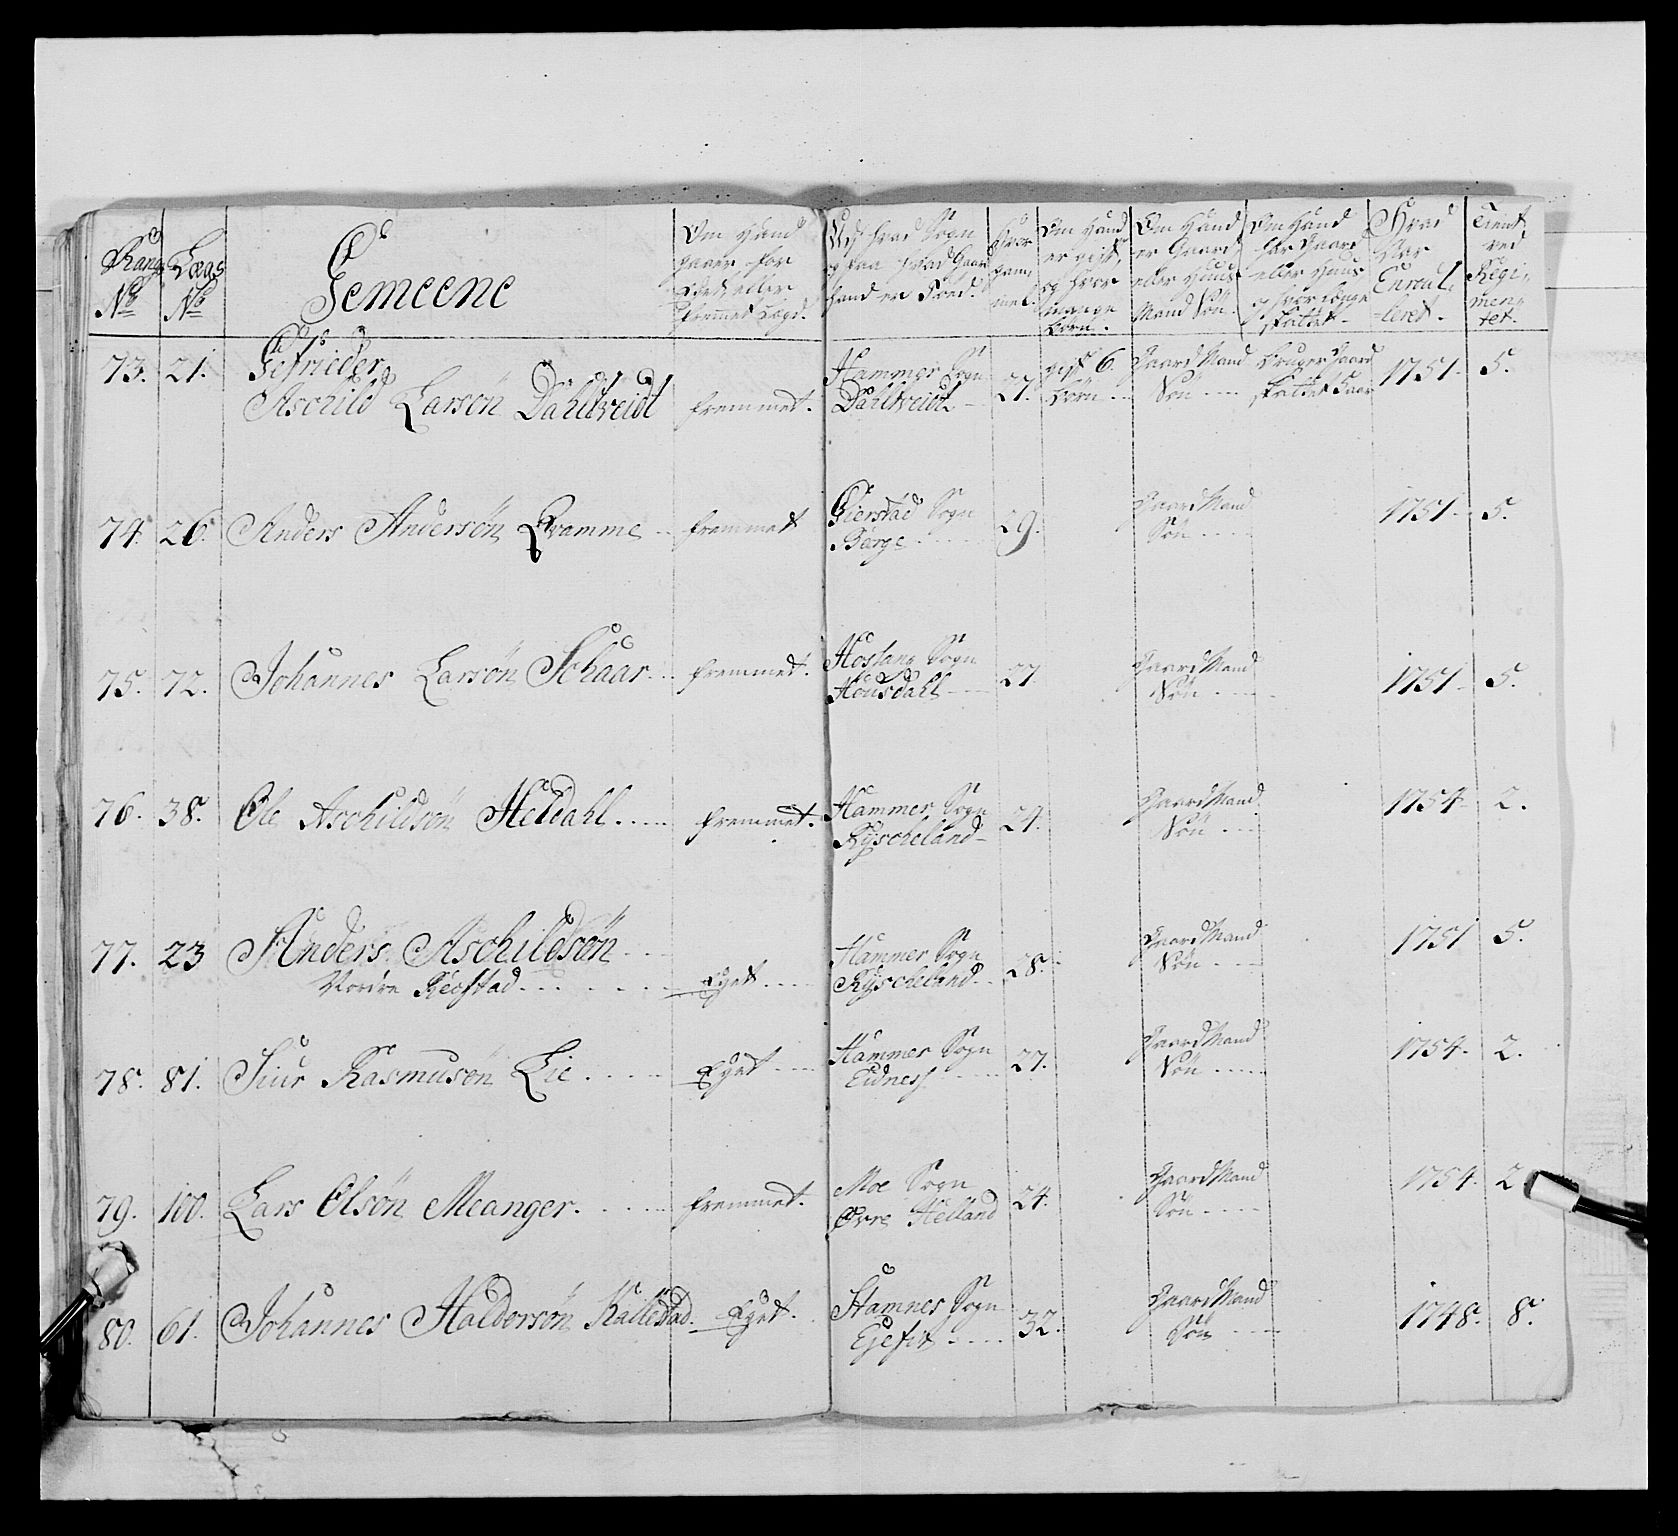 Rang No
Lægs No
Gemeene
Om hand staaer for Eget eller fremmet Lægd.
Ud hvad Sogn og paa hvad Gaard hand er Föed.
Hvor gammel.
Om Hand er gift, og hvor mange börn.
Om Hand er Gaard eller Huus Mand Sön.
Om Hand har Gaard eller Huus og hvor länge skattet
Hvad Aar Enroulleret.
Tient ved Regimentet.
73. 21. Gefrieder
Aschild Larsön Dahltveidt fremmet. Hammer Sogn Dahltveidt 27. gift 6. börn Gaard Mand Sön bruger Gaard skattet 1751. 5.
74. 26. Anders Andersön Qvamme fremmet Gierstad Sogn Barge 29. Gaard Mand Sön 1751 5.
75. 72. Johannes Larsön Schaar fremmet. Hoslang Sogn Housdahl 27 Gaard Mand Sön 1751 5.
76. 38. Ole Aschildsön Heldahl fremmet. Hammer Sogn Rÿscheland 24. Gaard Mand Sön 1754 2.
77. 23 Anders Aschildsön
Nordre Reostad Eget Hammer Sogn Rÿscheland 28. Gaard Mand Sön 1751 5.
78. 81. Siur Rasmusön Lie Eget Hammer Sogn Eidness 27. Gaard Mand Sön 1754. 2.
79. 100. Lars Olsön Meanger. fremmet. Moe Sogn Øvre Heiland 24. Gaard Mand Sön 1754. 2
80. 61. Johannes Haldorsön Kallestad. Eget. Stamnes Sogn 32. Gaard Mand Sön 1748. 8.